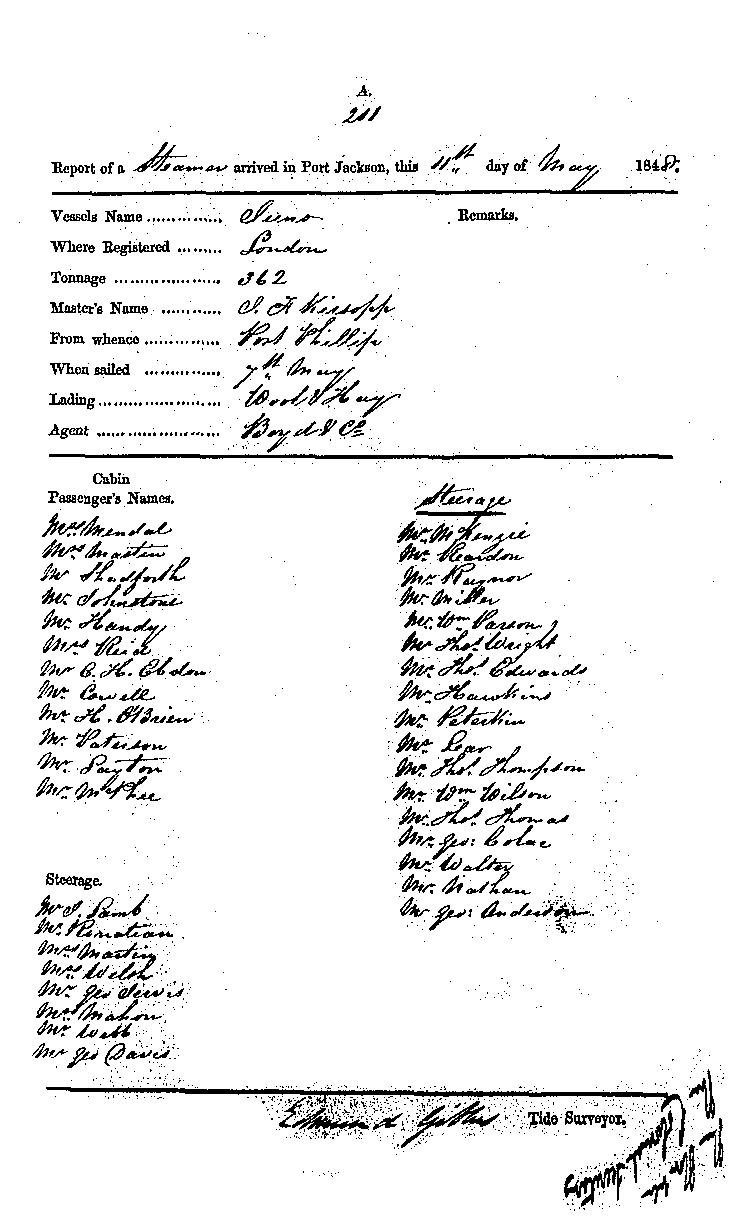 A.
211
Report of a Steamer arrived in Port Jackson, this 11th day of May 1848.
Vessels Name .............. Juno
Remarks.
Where Registered ......... London
Tonnage .................... 362
Master's Name ........... J. F. Kissopp
From whence .............. Port Phillip
When sailed .............. 7th May
Lading ....................... Wool & Hay
Agent ....................... Boyd & Co
Cabin
Passenger's Names.
Mrs Mendal
Mrs Martin
Mr Shadforth
Mr Johnstone
Mr Handy
Mrs Reid
Mr C. H. Ebdon
Mr Cowell
Mr H. O'Brien
Mr Paterson
Mr Payton
Mr McPhee
Steerage.
Mr J. Lamb
Mr
Mrs Martin
Mrs Welsh
Mr Geo Lewis
Mrs Mahon
Mr Webb
Mr Geo Davis
Steerage
Mr McKenzie
Mr Reardon
Mr Raynor
Mr Miller
Mr Wm Parson
Mr Thos Wright
Mr Thos Edwards
Mr Hawkins
Mr Peterkin
Mr Lear
Mr Thos Thompson
Mr Wm Wilson
Mr Thos Thomas
Mr Geo: Colac
Mr Walter
Mr Nathan
Mr Geo: Anderson
Edmund Tide Surveyor.